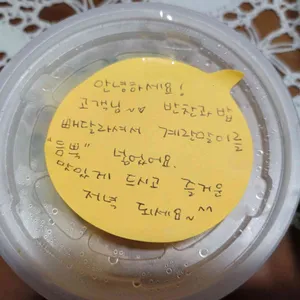 안녕하세요!
고객님~ 반찬과 밥
빼달라셔서 계란말이를
"듬뿍" 넣었어요.
맛있게 드시고 즐거운
저녁 되세요~ ^^